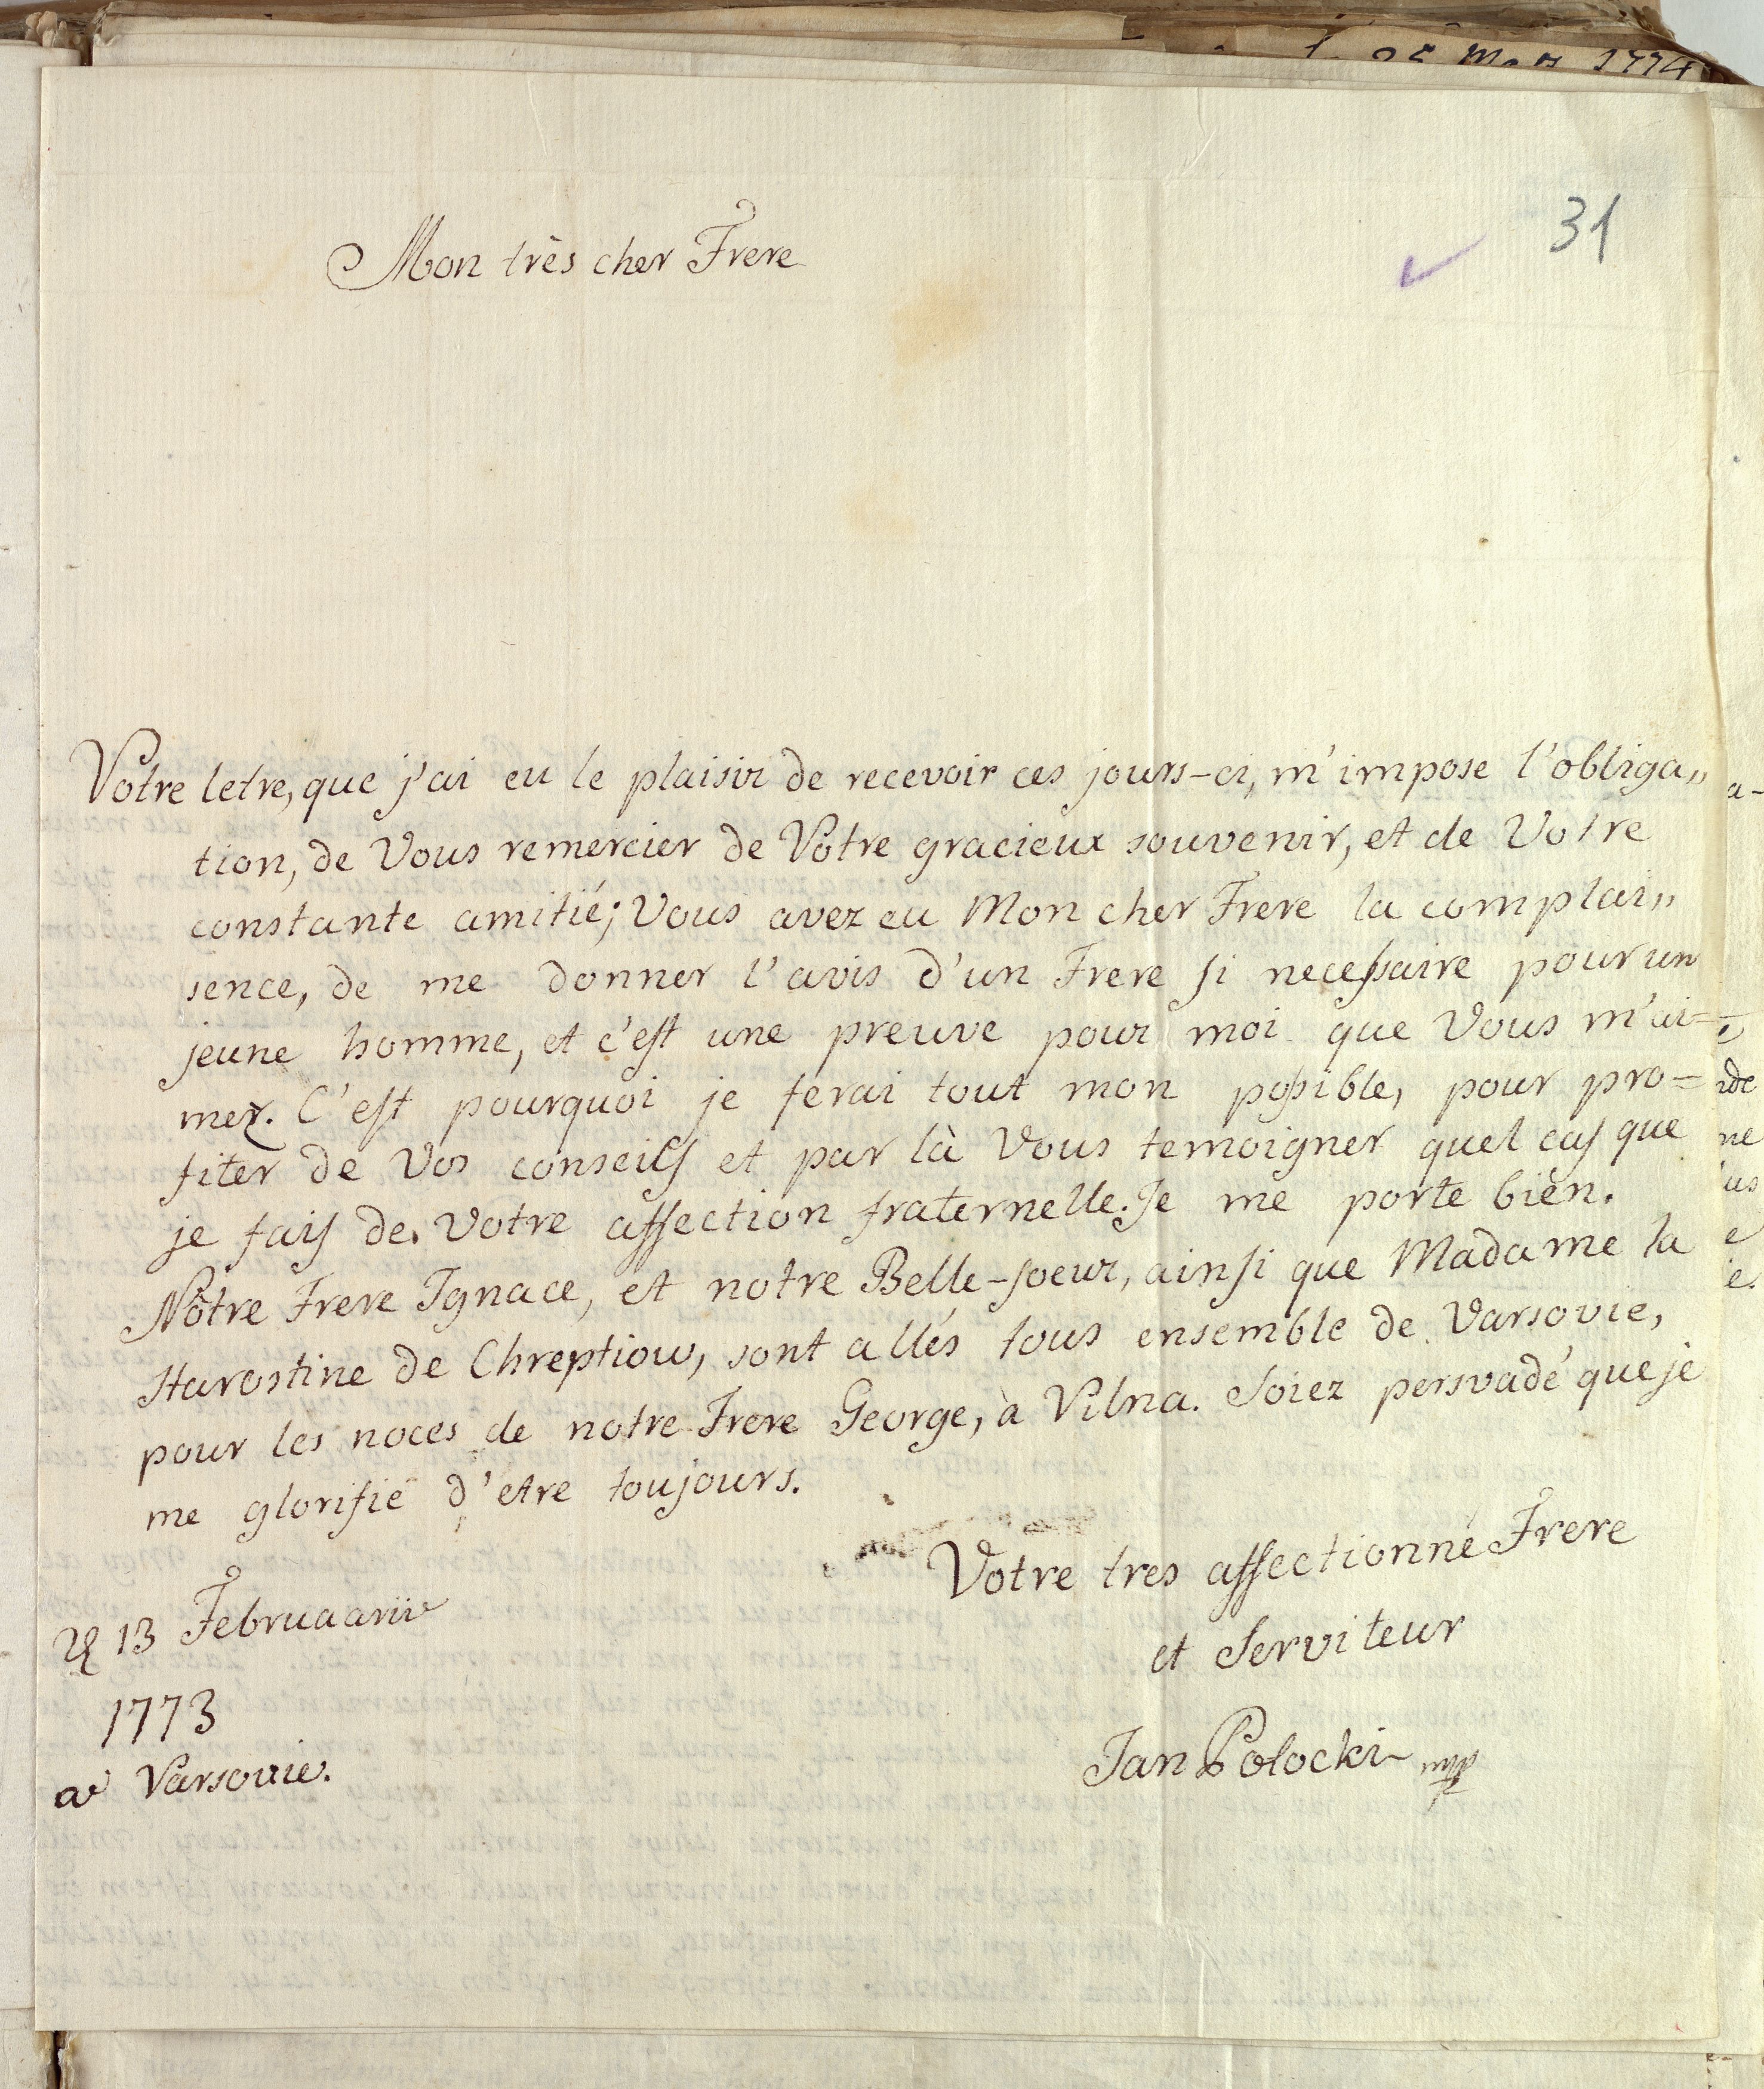 31
Mon très cher Frere
Votre letre, que j'ai eu le plaisir de recevoir ces jours-ci, m'impose l'obliga„
tion, de Vous remercier de Vôtre gracieux souvenir, et de Votre
constante amitié; Vous avez eu Mon cher Frere la complai„
sence, de me donner l'avis d'un Frere si necessaire pour un
jeune homme, et c'est une preuve pour moi que Vous m'ai=
mez. C'est pourquoi je ferai tout mon possible, pour pro=
fiter de Vos conseils et par là Vous temoigner quel cas que
je fais de Votre affection fraternelle. Je me porte bien.
Nôtre Frere Ignace, et notre Belle-soeur, ainsi que Madame la
Starostine de Chreptiow, sont allés tous ensemble de Varsovie,
pour les noces de notre Frere George, à Vilna. Soiez persvadé que je
me glorifie d'etre toujours.
Votre tres affectionné Frere
et Serviteur
Jan Potocki mpp
13 Februaarii
1773
a Varsovie.